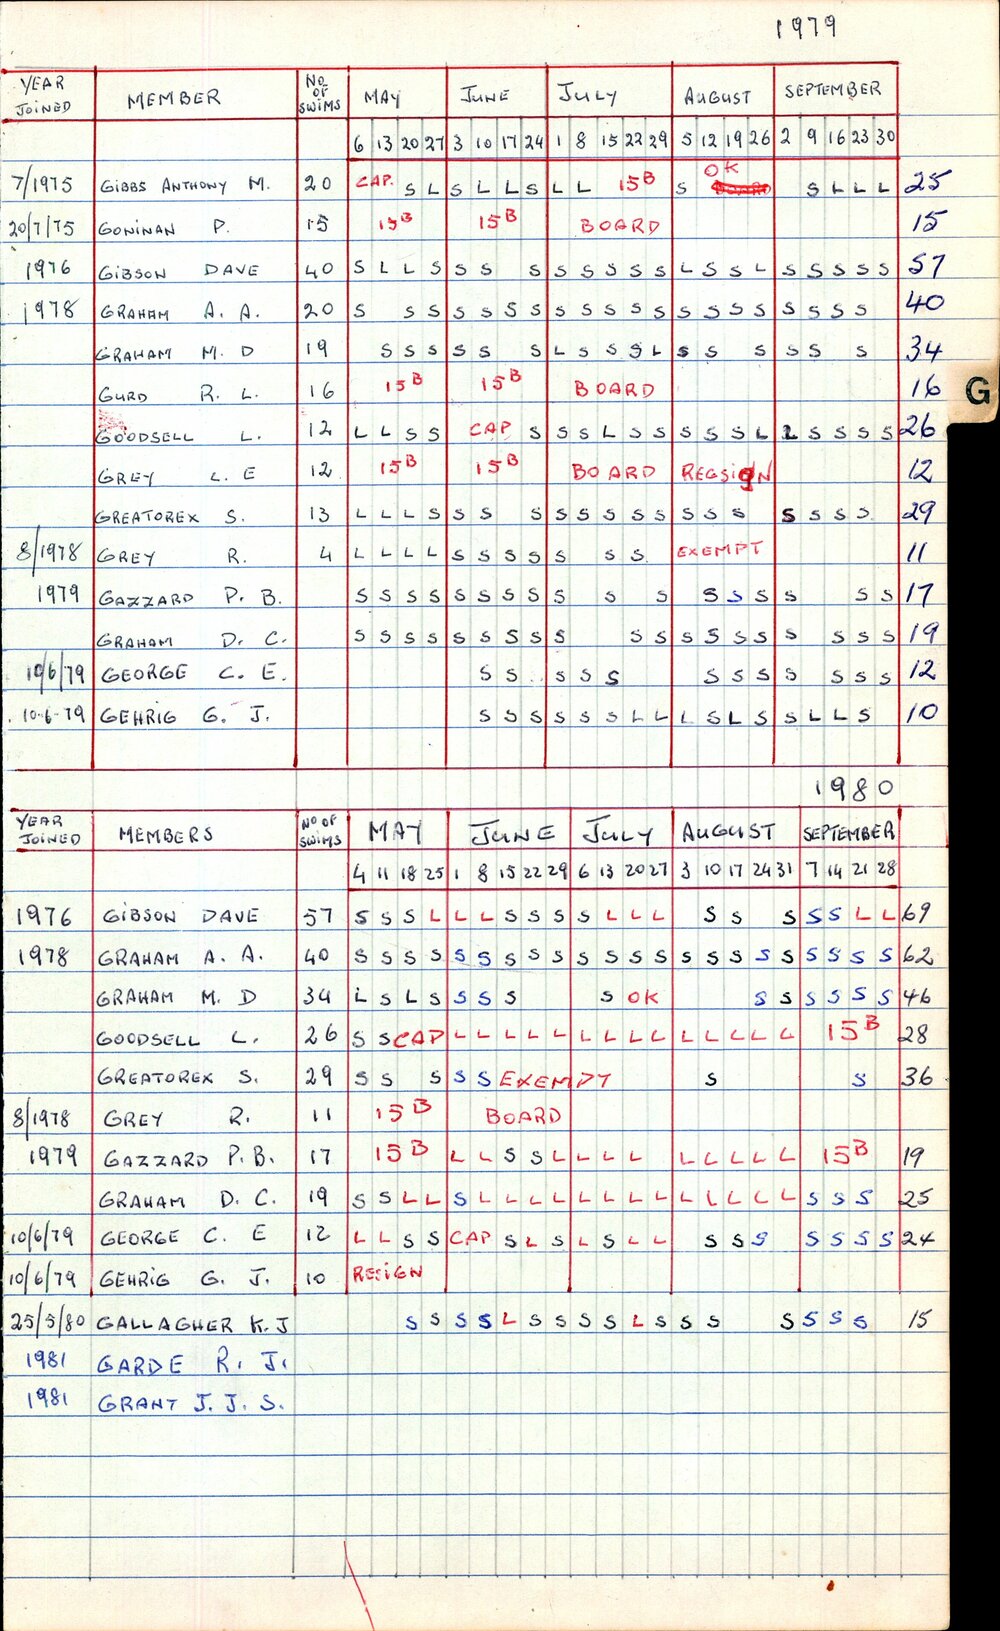 1979
YEAR JOINED MEMBER No OF SWIMS MAY JUNE JULY AUGUST SEPTEMBER
6 13 20 27 3 10 17 24 1 8 15 22 29 5 12 19 26 2 9 16 23 30
7/1975 GIBBS ANTHONY M. 20 CAP. S L S L L S L L 15B S OK S L L L 25
20/7/75 GONINAN P. 15 15B 15B BOARD 15
1976 GIBSON DAVE 40 S L L S S S S S S S S S L S S L S S S S S 57
1978 GRAHAM A. A. 20 S S S S S S S S S S S S S S S S S S S S 40
GRAHAM M. D 19 S S S S S S L S S S L S S S S S S 34
GURD R. L. 16 15B 15B BOARD 16
G
GOODSELL L. 12 L L S S CAP S S S L S S S S S L L S S S S 26
GREY L. E 12 15B 15B BOARD REGSIGN 12
GREATOREX S. 13 L L L S S S S S S S S S S S S S S S S 29
8/1978 GREY R. 4 L L L L S S S S S S S EXEMPT 11
1979 GAZZARD P. B. S S S S S S S S S S S S S S S S S S 17
GRAHAM D. C. S S S S S S S S S S S S S S S S S S S 19
10/6/79 GEORGE C. E. S S S S S S S S S S S S S 12
10-6-79 GEHRIG G. J. S S S S S S L L L S L S S L L S 10
1980
YEAR JOINED MEMBERS NO OF SWIMS MAY JUNE JULY AUGUST SEPTEMBER
4 11 18 25 1 8 15 22 29 6 13 20 27 3 10 17 24 31 7 14 21 28
1976 GIBSON DAVE 57 S S S L L L S S S S L L L S S S S S L L 69
1978 GRAHAM A. A. 40 S S S S S S S S S S S S S S S S S S S S S S 62
GRAHAM M. D 34 L S L S S S S S OK S S S S S S 46
GOODSELL L. 26 S S CAP L L L L L L L L L L L L L L 15B 28
GREATOREX S. 29 S S S S S EXEMPT S S 36
8/1978 GREY R. 11 15B BOARD
1979 GAZZARD P. B. 17 15B L L S S L L L L L L L L L 15B 19
GRAHAM D. C. 19 S S L L S L L L L L L L L L L L L L S S S 25
10/6/79 GEORGE C. E 12 L L S S CAP S L S L S L L S S S S S S S 24
10/6/79 GEHRIG G. J. 10 RESIGN
25/5/80 GALLAGHER K. J S S S S L S S S S L S S S S S S S 15
1981 GARDE R. J.
1981 GRANT J. J. S.